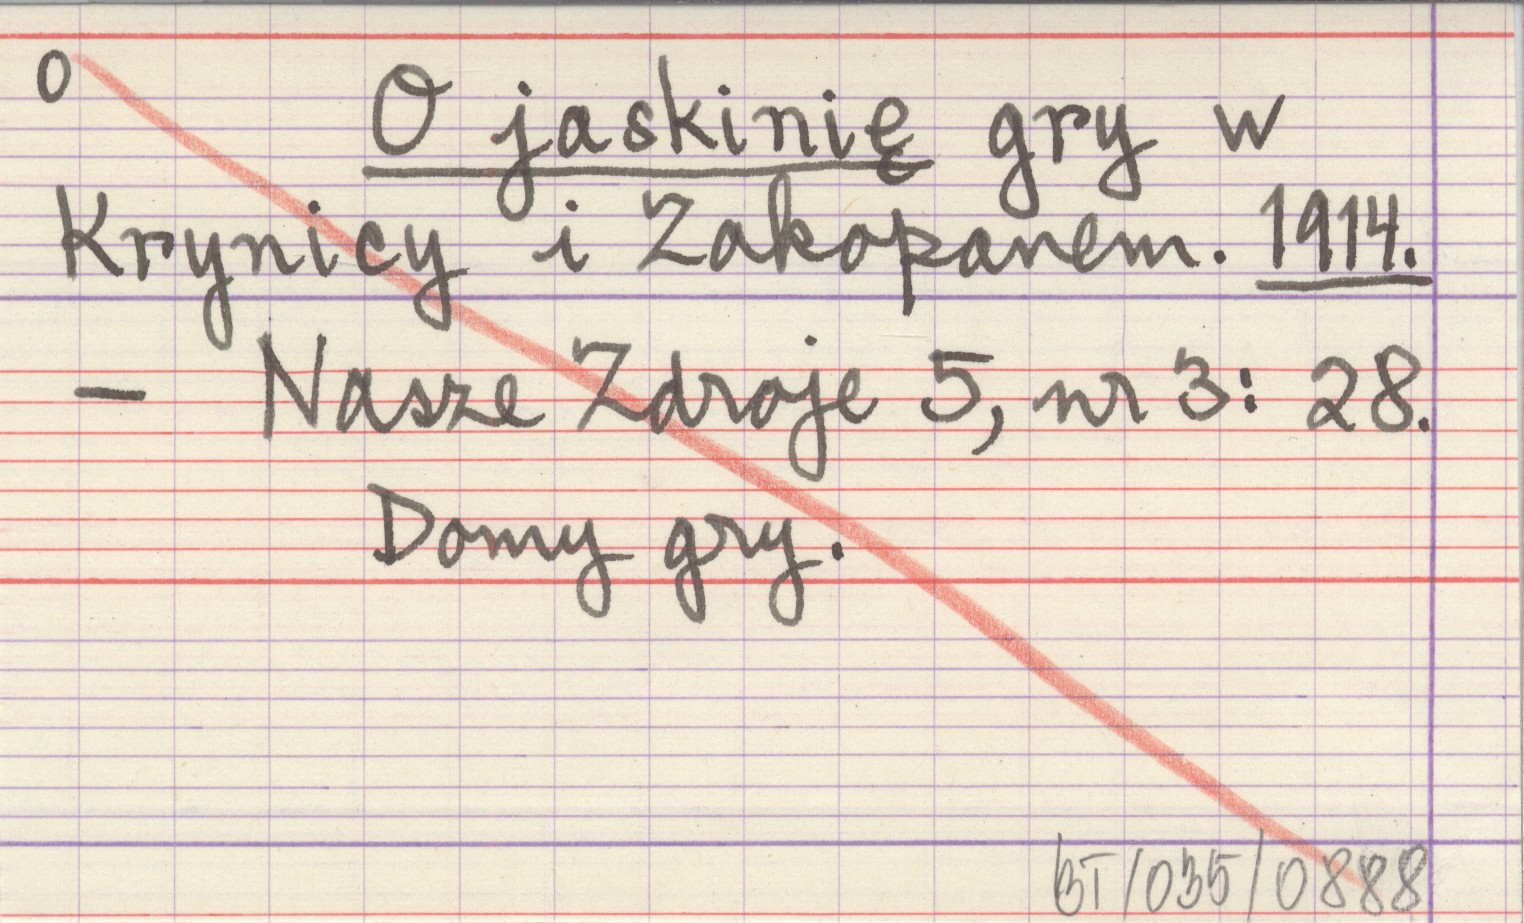 O
O jaskinię gry w
Krynicy i Zakopanem. 1914.
- Nasze Zdroje 5, nr 3: 28.
Domy gry.
BT/035/0888